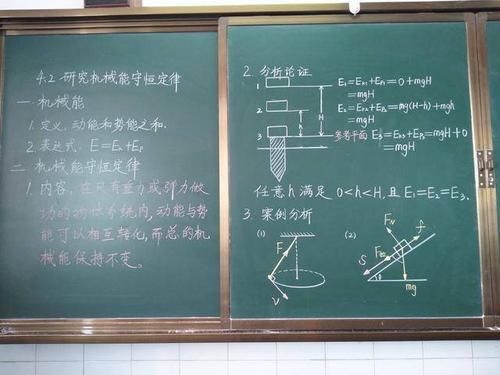 4.2 研究机械能守恒定律
一. 机械能
1. 定义: 动能和势能之和.
2. 表达式: E=Eₖ+Eₚ
二. 机械能守恒定律
1. 内容: 在只有重力或弹力做
功的物体系统内,动能与势
能可以相互转化,而总的机
械能保持不变。
2. 分析论证
1
2
3
h
H
E₁=Eₖ₁+Eₚ₁=0+mgH
=mgH
E₂=Eₖ₂+Eₚ₂=mg(H-h)+mgh
=mgH
参考平面 E₃=Eₖ₃+Eₚ₃=mgH+0
=mgH
任意h满足 0<h<H, 且 E₁=E₂=E₃.
3. 案例分析
(1)
F
v
(2)
F_N
f
S
θ
mg